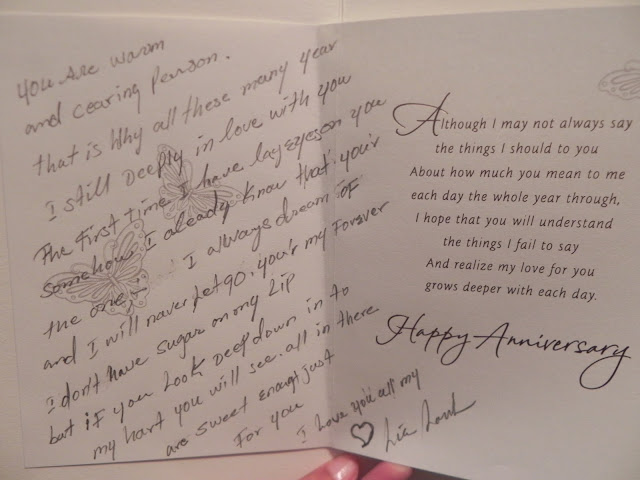 you Are warm
and cearing person.
that is why all these many year
I still Deeply in love with you
The first time I have lay eyes on you
somehow I aleady know that you'r
the one,- I always dream of
and I will never Let go. you'r my Forever
I don't have sugar on my Lip
but if you Look Deep down in to
my hart you will see. all in there
are sweet enough just
For you
I Love you all my
♡
Although I may not always say
the things I should to you
About how much you mean to me
each day the whole year through,
I hope that you will understand
the things I fail to say
And realize my love for you
grows deeper with each day.
Happy Anniversary